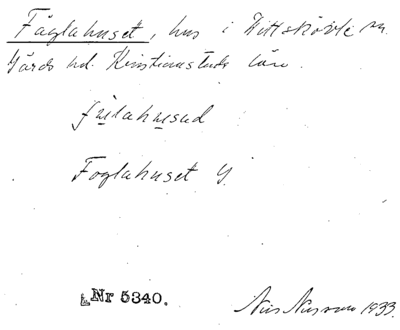 Fåglahuset, hus i Vittskövle sn.
Gärds hd. Kristianstads län.
fúlahúsad
Foglahuset Y.
Nr 5340.
Nils Nilsson 1933.